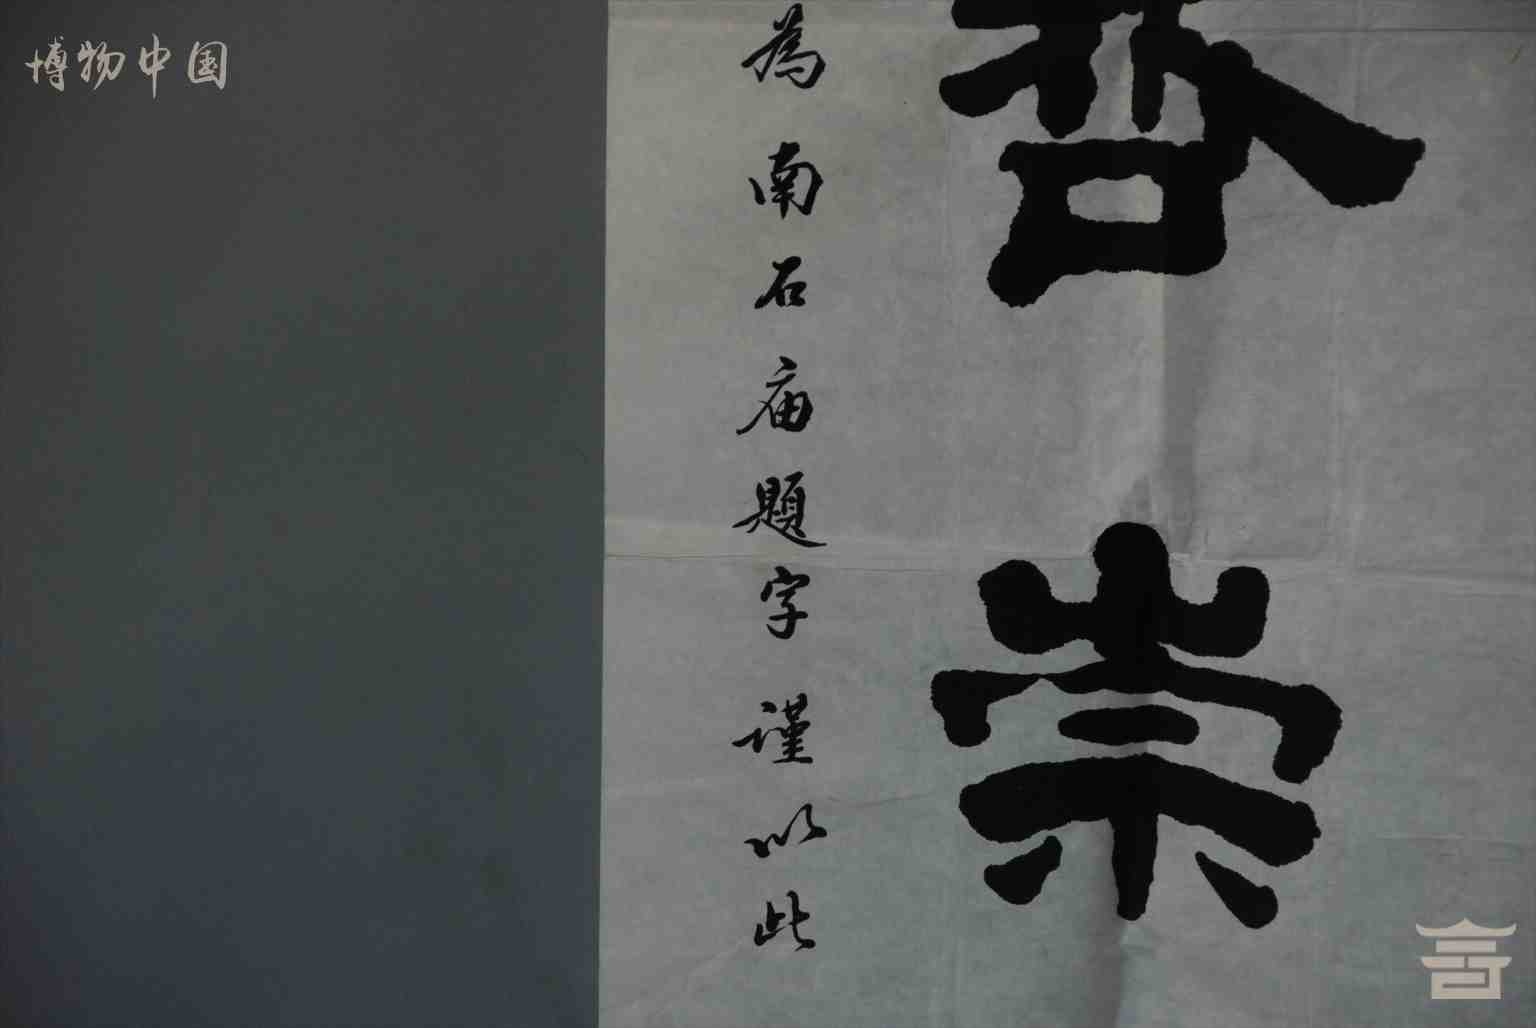 博物中国
哲崇
為南石庙題字謹以此